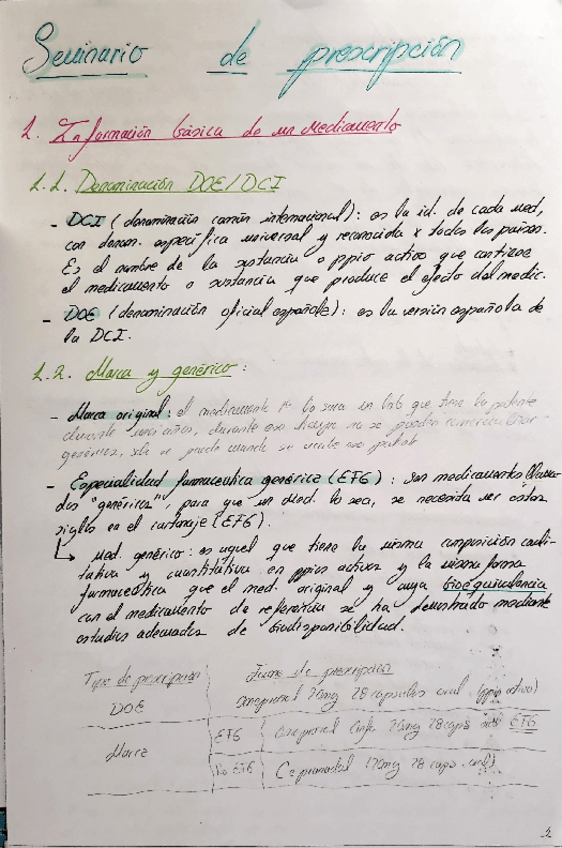 Seminario de prescripción
1. Información básica de un medicamento
1.1. Denominación DOE/DCI
- DCI (denominación común internacional): es la id. de cada med,
con denom. específica universal y reconocida x todos los países.
Es el nombre de la sustancia o ppio activo que contiene
el medicamento o sustancia que produce el efecto del medic.
- DOE (denominación oficial española): es la versión española de
la DCI.
1.2. Marca y genérico:
- Marca original: el medicamento 1º lo saca un lab que tiene la patente
durante unos años, durante ese tiempo no se pueden comercializar
genéricos, solo se puede cuando se vende esa patente.
- Especialidad farmaceutica genérica (EFG): son medicamentos llama-
dos "genéricos", para que un med. lo sea, se necesita ver estas
siglas en el cartonaje (EFG).
↳ Med. genérico: es aquel que tiene la misma composición cuali-
tativa y cuantitativa en ppios activos y la misma forma
farmaceútica que el med. original y cuya bioequivalencia
con el medicamento de referencia se ha demostrado mediante
estudios adecuados de biodisponibilidad.
Tipo de prescripción Forma de prescripción
DOE omeprazol 20mg 28 capsulas oral (ppio activo)
Marca EFG omeprazol Cinfa 20mg 28 caps oral EFG
No EFG 20mg 28 caps oral
1